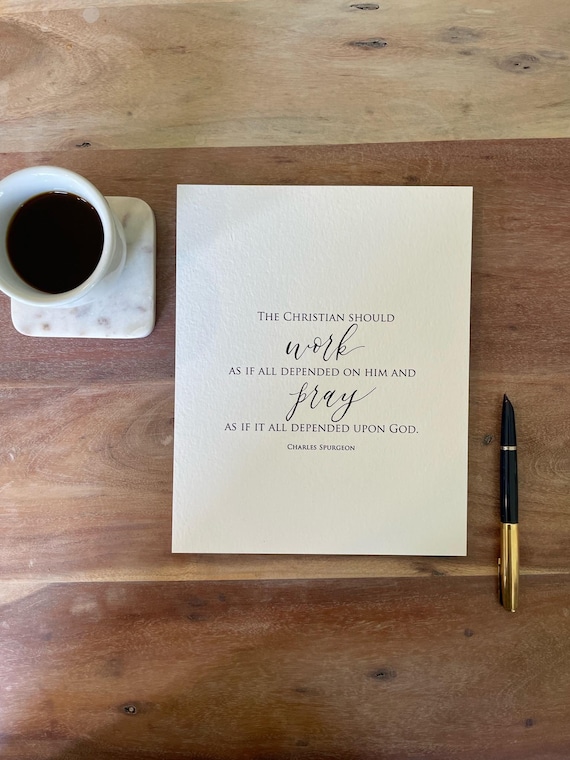 The Christian should
work
as if all depended on him and
pray
as if it all depended upon God.
Charles Spurgeon